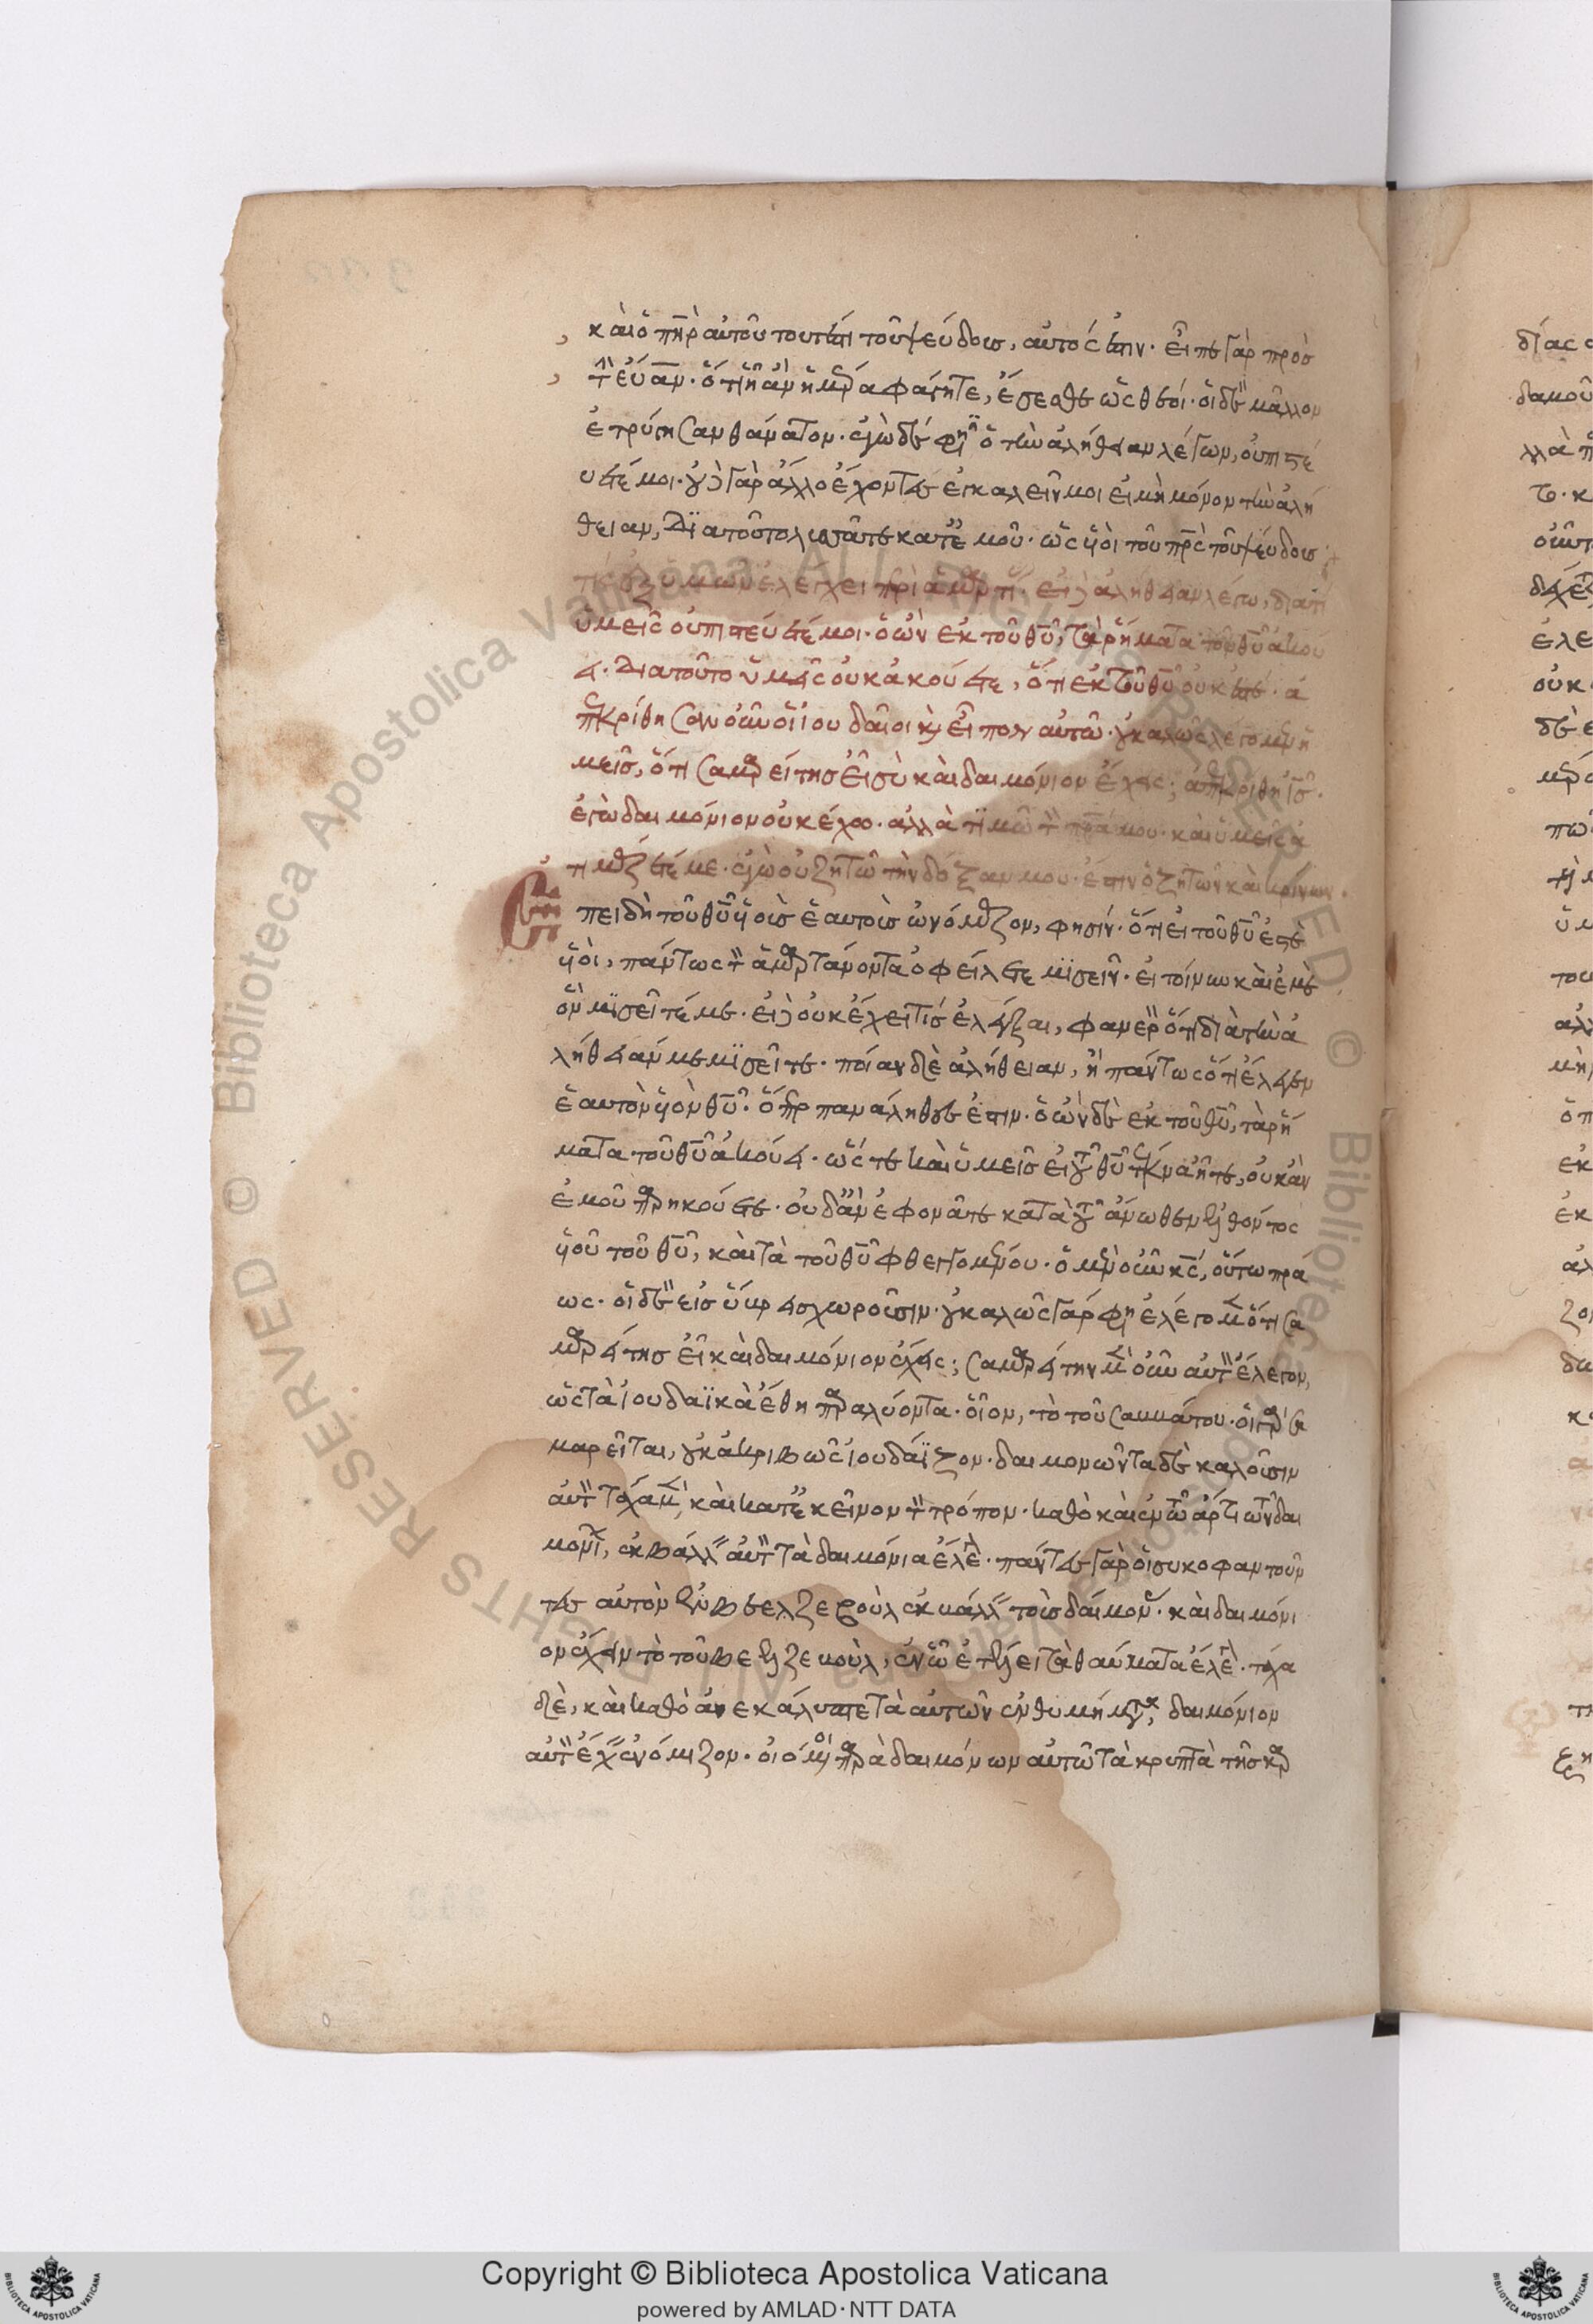 καὶ ὁ πηρ αὐτοῦ τουτέστι τοῦ ψεύδους, αὐτός ἐστιν. εἶπε γὰρ πρὸς
τὴν εὔαν. ὅτι ἡ ἂν ἡμέρα φάγητε, ἔσεσθε ὡς θεοί. οἱ δὲ μᾶλλον
ἐτρύγησαν θάνατον. ἐγὼ δέ φησιν ὅτι τὴν ἀλήθειαν λέγων, οὐ πιστεύ
ετέ μοι. οὐ γὰρ ἄλλο ἔχοντες ἐγκαλεῖν μοι εἰ μὴ μόνον τὴν ἀλή
θειαν, διατοῦτο λυττᾶτε κατ' ἐμοῦ. ὡς υἱοὶ τοῦ πρς τοῦ ψεύδους
τίς ἐξ ὑμῶν ἐλέγχει με περὶ ἁμαρτίας. εἰ δὲ ἀλήθειαν λέγω, διατί
ὑμεῖς οὐ πιστεύετέ μοι. ὁ ὢν ἐκ τοῦ θυ, τὰ ῥήματα τοῦ θυ ἀκού
ει. διατοῦτο ὑμεῖς οὐκ ἀκούετε, ὅτι ἐκ τοῦ θυ οὐκ ἐστέ. ἀ
πεκρίθησαν οὖν οἱ ἰουδαῖοι καὶ εἶπον αὐτῶ. οὐ καλῶς λέγομεν ἡ
μεῖς, ὅτι σαμαρείτης εἶ σὺ καὶ δαιμόνιον ἔχεις; ἀπεκρίθη ις.
ἐγὼ δαιμόνιον οὐκ ἔχω. ἀλλὰ τιμῶ τὸν πρα μου. καὶ ὑμεῖς ἀ
τιμάζετέ με. ἐγὼ οὐ ζητῶ τὴν δόξαν μου. ἔστιν ὁ ζητῶν καὶ κρίνων.
Ἐπειδὴ τοῦ θυ υἱοὺς ἑαυτοὺς ὠνόμαζον, φησίν. ὅτι εἰ τοῦ θυ ἐστὲ
υἱοί, πάντως τὸν ἁμαρτάνοντα ὀφείλετε μισεῖν. εἰ τοίνυν καὶ ἐμὲ
ὃν μισεῖτέ με. εἰ δὲ οὐκ ἔχει τίς ἐλέγξαι, φανερὸν ὅτι διὰ τὴν ἀ
λήθειάν με μισεῖτε. ποίαν δὲ ἀλήθειαν, ἢ πάντως ὅτι ἔλεγεν
ἑαυτὸν υἱὸν θυ. ὅπερ παναληθὲς ἐστιν. ὁ ὢν δὲ ἐκ τοῦ θυ, τὰ ῥή
ματα τοῦ θυ ἀκούει. ὥστε καὶ ὑμεῖς εἰ τοῦ θυ τέκνα ἦτε, οὐκ ἂν
ἐμοῦ παρηκούετε. οὐδ' ἂν ἐφονᾶτε κατὰ τοῦ ἄνωθεν ἐλθόντος
υἱοῦ τοῦ θυ, καὶ τὰ τοῦ θυ φθεγγομένου. ὁ μὲν οὖν κς, οὕτω πρά
ως. οἱ δὲ εἰς ὕβρεις χωροῦσιν. οὐ καλῶς γάρ φησιν ἐλέγομεν ὅτι σα
μαρείτης εἶ καὶ δαιμόνιον ἔχεις; σαμαρείτην μὲν οὖν αὐτὸν ἔλεγον,
ὡς τὰ ἰουδαϊκὰ ἔθη παραλύοντα. οἷον, τὸ τοῦ σαββάτου. οἱ γὰρ σα
μαρεῖται, οὐκ ἀκριβῶς ἰουδάϊζον. δαιμονῶντα δὲ καλοῦσιν
αὐτὸν τάχα μὲν, καὶ κατ' ἐκεῖνον τὸν τρόπον. καθὸ καὶ ἐν τῶ
ἐκβάλλειν αὐτὸν τὰ δαιμόνια ἔλεγον. πάντες γὰρ οἱ συκοφαντοῦν
τες αὐτὸν ἐν βεελζεβοὺλ ἐκβάλλειν τοὺς δαίμονας. καὶ δαιμόνι
ον ἔχειν τὸ τοῦ βεελζεβούλ, ἐν ᾧ ἐτέλει τὰ θαύματα ἔλεγον. τάχα
δὲ, καὶ καθὸ ἀνεκάλυπτε τὰ αὐτῶν ἐνθυμήματα, δαιμόνιον
αὐτὸν ἔχειν ἐνόμιζον. οἰόμενοι παρὰ δαιμόνων αὐτῶ τὰ κρυπτὰ τῆς καρ
Copyright © Biblioteca Apostolica Vaticana
powered by AMLAD · NTT DATA